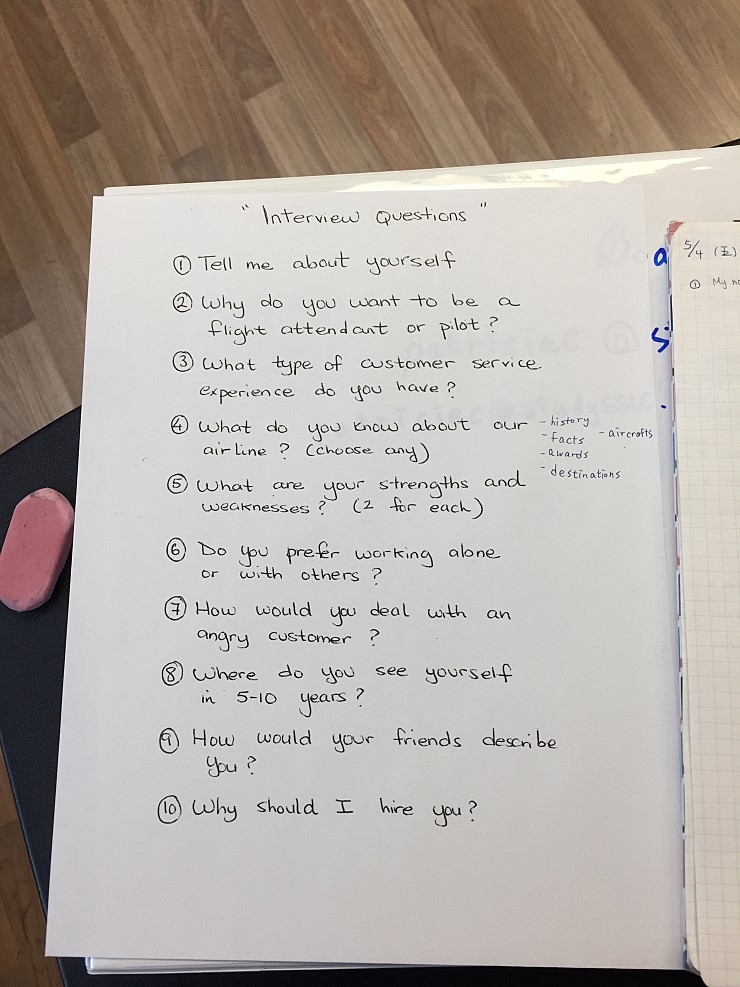 " Interview Questions "
① Tell me about yourself
② Why do you want to be a
flight attendant or pilot ?
③ What type of customer service
experience do you have ?
④ What do you know about our
airline ? (choose any)
- history
- facts - aircrafts
- awards
- destinations
⑤ What are your strengths and
weaknesses ? (2 for each)
⑥ Do you prefer working alone
or with others ?
⑦ How would you deal with an
angry customer ?
⑧ Where do you see yourself
in 5-10 years ?
⑨ How would your friends describe
you ?
⑩ Why should I hire you ?
5/4
① My